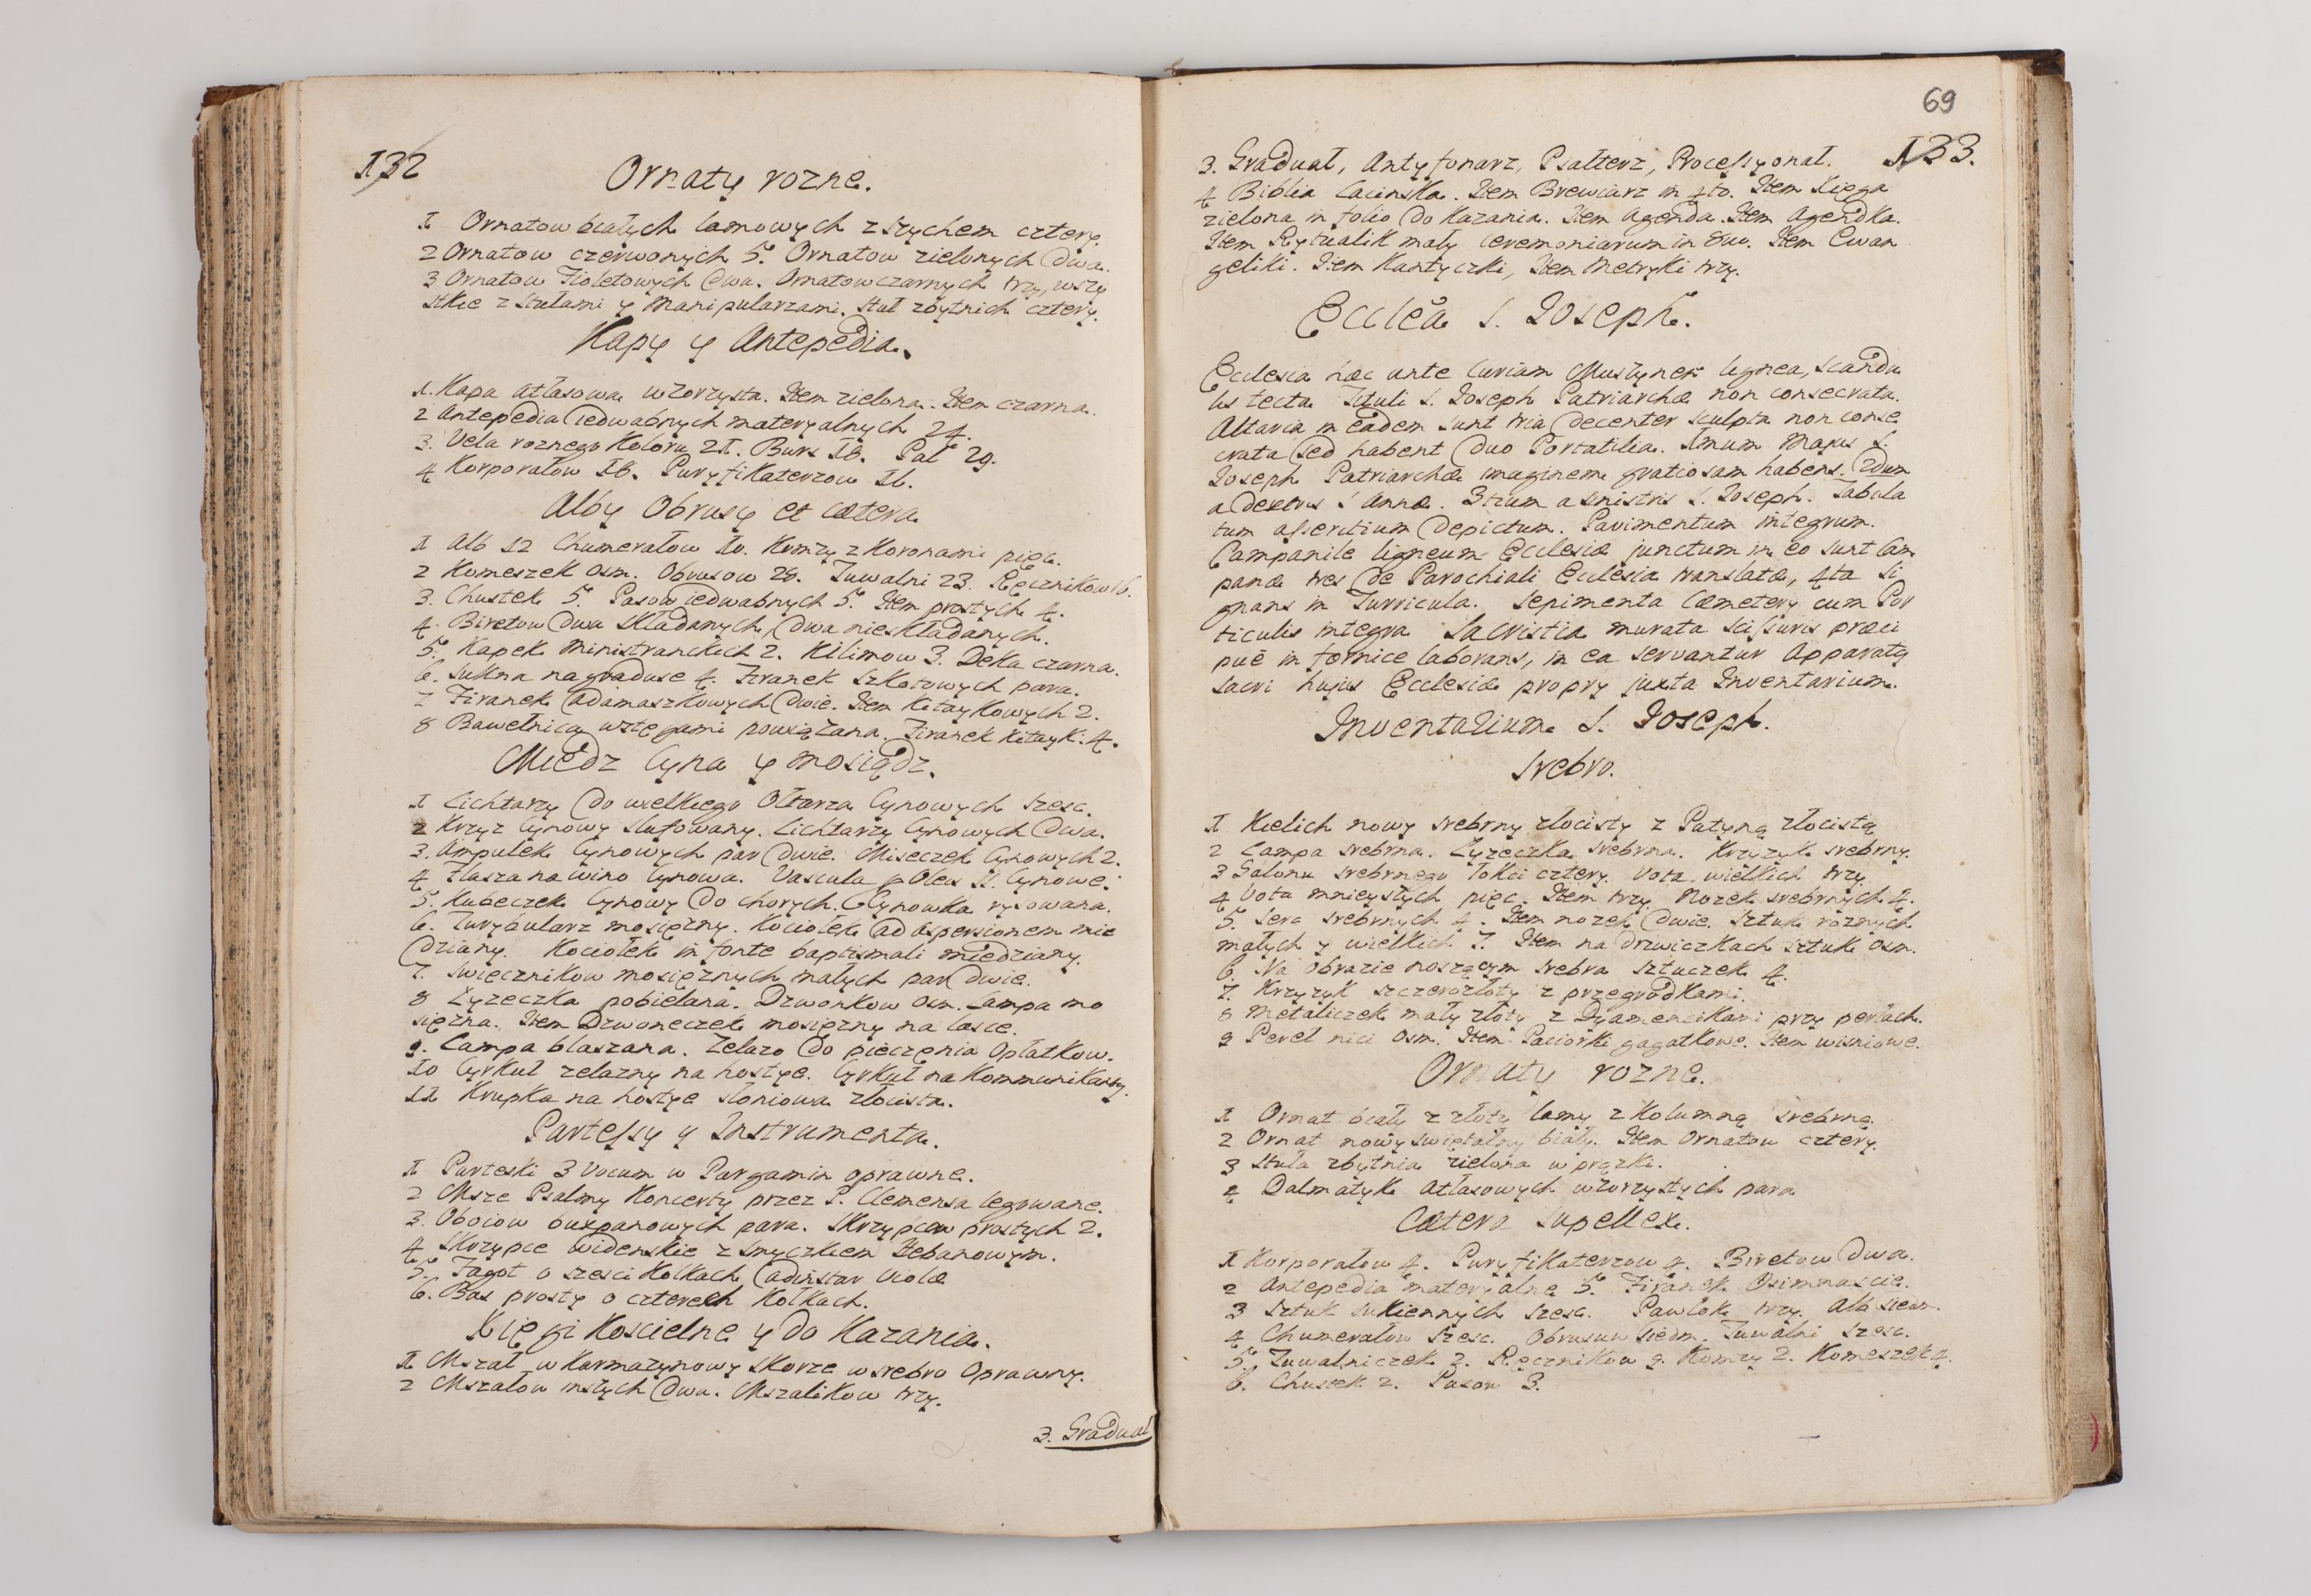 132
Ornaty rozne.
1 Ornatow białych lamowych z sztychem cztery.
2 Ornatow czerwonych 5. Ornatow zielonych dwa.
3 Ornatow Fioletowych dwa. Ornatow czarnych trzy, wszy
stkie z stułami y Manipularzami. Stuł zbytnich cztery.
Kapy y Antepedia.
1. Kapa atłasowa wzorzysta. Item zielona. Item czarna.
2 Antepedia iedwabnych materyalnych 24.
3. Vela roznego Koloru 21. Burs 18. Pal 29.
4 Korporałow 18. Puryfikaterzow 16.
Alby Obrusy et cætera
1 Alb 12 Chumerałow 10. Komzy z Koronami pięc.
2 Komeszek osm. Obrusow 28. Tuwalni 23. Ręcznikow 16.
3. Chustek 5. Pasow iedwabnych 5. Item prostych 4.
4. Biretow dwa składanych, dwa nieskładanych.
5. Kapek Ministranckich 2. Kilimow 3. Deka czarna.
6. Sukna na graduse 4. Firanek szkotowych para.
7 Firanek adamaszkowych dwie. Item Kitaykowych 2.
8 Bawełnica wstęgami powiązana. Firanek Kitayk: 4.
Miedz Cyna y Mosiądz.
1 Lichtarzy do wielkiego Ołtarza Cynowych szesc.
2 Krzyz Cynowy slufowany. Lichtarzy Cynowych dwa.
3. Ampułek Cynowych par dwie. Miseczek Cynowych 2.
4 Flasza na wino Cynowa. Vascula p Olea SS. Cynowe.
5. Kubeczek Cynowy do chorych. Cynowka rysowana.
6. Turybularz mosięzny. Kociołek ad aspersionem mie
dziany. Kociołek in fonte baptismali miedziany.
7. Swiecznikow mosięznych małych par dwie.
8 Łyzeczka pobielana. Dzwonkow osm. Lampa mo
sięzna. Item Dzwoneczek mosięzny na lasce.
9. Lampa blaszana. Zelazo do pieczenia Opłatkow.
10 Cyrkuł zelazny na hostye. Cyrkuł na Kommunikanty.
11 Krupka na hostye słoniowa złocista.
Partessy y Instrumenta.
1 Parteski 3 Vocum w Pargamin oprawne.
2 Msze Psalmy Koncerty przez P. Clemensa legowane.
3. Oboiow buxpanowych para. Skrzypcow prostych 2.
4 Skrzypce widenskie z smyczkiem Hebanowym.
5. Fagot o szesci Kołkach ad instar Violæ
6. Bas prosty o czterech Kołkach.
Xięgi Koscielne y do Kazania.
1 Mszał w Karmazynowy skorze w srebro oprawny.
2 Mszałow inszych dwa. Mszalikow trzy.
3. Graduał
69
133.
3. Graduał, Antyfonarz, Psałterz, Processyonał.
4 Biblia Łacinska. Item Brewiarz in 4to. Item Xięga
zielona in folio do Kazania. Item Agenda. Item Agendka.
Item Rytualik mały ceremoniarum in 8vo. Item Ewan
geliki. Item Kantyczki, Item Metryki trzy.
Eccleã S. Joseph.
Ecclesia hæc ante Curiam Muszynen lignea, scandu
lis tecta Tituli S. Joseph Patriarchæ non consecrata.
Altaria in eadem sunt tria decenter sculpta non conse
crata sed habent duo Portatilia. 1mum Majus S.
Joseph Patriarchæ imaginem gratiosam habens. 2dum
a dextris S Annæ. 3tium a sinistris S. Joseph. Tabula
tum asseritium depictum. Pavimentum integrum.
Campanile ligneum Ecclesiæ junctum in eo sunt Cam
panæ tres de Parochiali Ecclesia translatæ, 4ta Si
gnans in Turricula. Sepimenta Cæmetery cum Por
ticulis integra Sacristia murata scissuris præci
puè in fornice laborans, in ea servantur Apparatq
sacri hujus Ecclesiæ propry juxta Inventarium.
Inventarium S. Joseph.
Srebro.
1 Kielich nowy srebrny złocisty z Patyną złocistą
2 Lampa srebrna. Łyzeczka srebrna. Krzyzyk srebrny.
3 Galonu srebrnego łokci cztery. Vota wielkich trzy
4 Vota mnieyszych pięc. Item trzy. Nozek srebrnych 4.
5. Serc srebrnych 4. Item nozek dwie. Sztuk roznych
małych y wielkich 7. Item na drzwiczkach sztuk osm.
6. Na obrazie noszącym srebra sztuczek 4.
7. Krzyzyk szczerozłoty z przegrodkami.
8 Metaliczek mały złoty z Dyamencikami przy perłach.
9 Pereł nici osm. Item Paciorki gagatkowe. Item wisniowe.
Ornaty rozne.
1 Ornat biały z złoty lamy z kolumną srebrną.
2 Ornat nowy swiętalny biały. Item Ornatow cztery.
3 Stuła zbytnia zielona w prązki.
4 Dalmatyk atłasowych wzorzystych para
Cætera supellex.
1 Korporałow 4. Puryfikaterzow 4. Biretow dwa.
2 Antepedia materyalne 5. Firanek Osimnascie.
3 Sztuk sukiennych szesc. Pawłok trzy. Alb siedm.
4 Chumerałow szesc. Obrusow siedm. Tuwalni szesc.
5. Tuwalniczek 2. Ręcznikow 9. Komzy 2. Komeszek 4.
6. Chustek 2. Pasow 3.